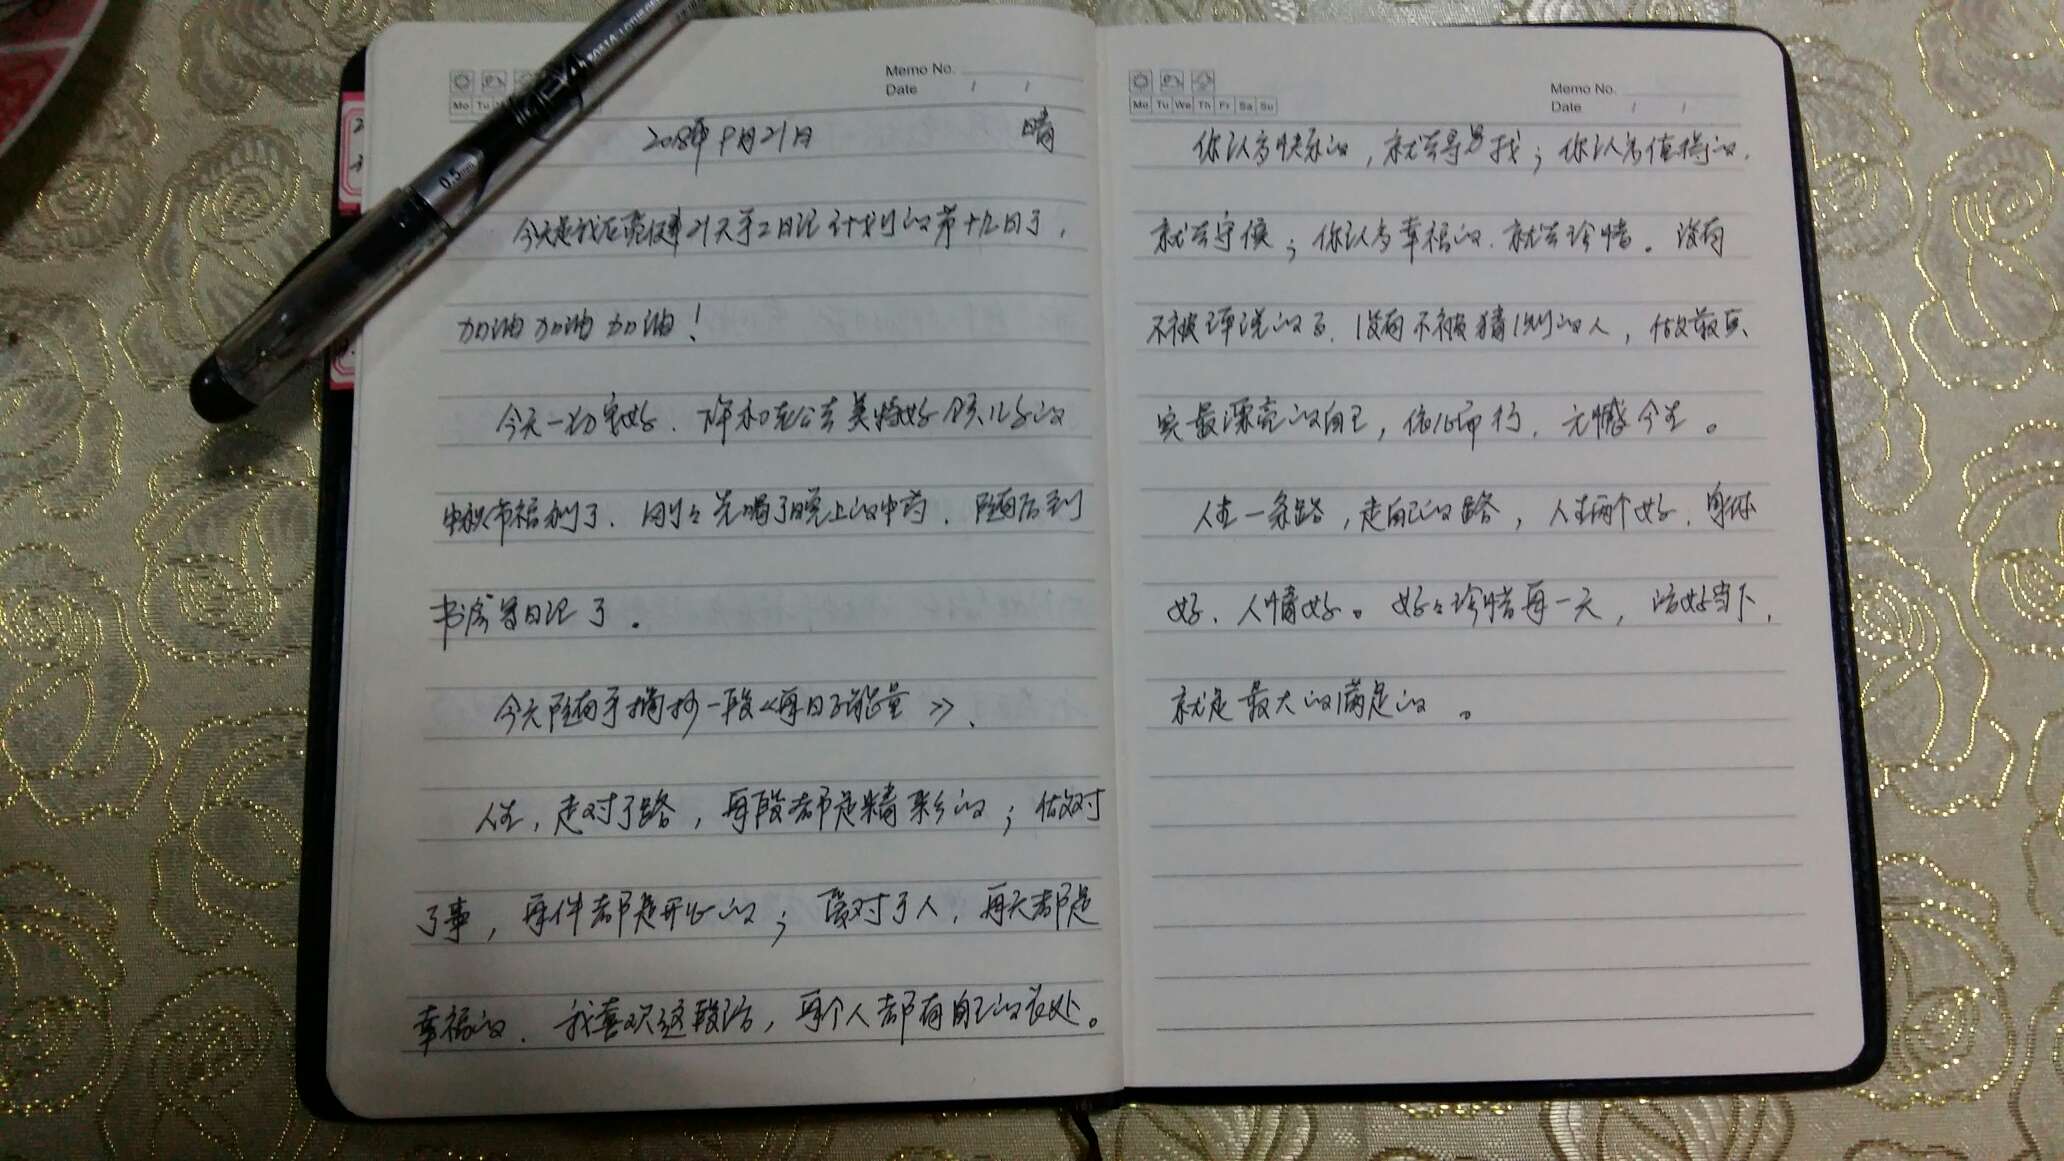 0.5mm
Memo No.
Date / /
Mo Tu
2018年9月21日 晴
今天是我在 21天手工日记计划的第十九日了，
加油加油加油！
今天一切安好、下午和老公去美特好领儿子的
中秋节福利了、刚刚先喝了晚上的中药、随后到
书房写日记了。
今天随手摘抄一段《每日正能量》、
人生，走对了路，每段都是精彩的；做对
了事，每件都是开心的；爱对了人，每天都是
幸福的、我喜欢这段话，每个人都有自己的长处。
Memo No.
Date / /
Mo Tu We Th Fr Sa Su
你认为快乐的，就去寻找；你认为值得的、
就去守候；你认为幸福的、就去珍惜。没有
不被评说的事、没有不被猜测的人，做最真
实最漂亮的自己，依心而行、无憾今生。
人生一条路，走自己的路，人生两个好、身体
好、人情好。好々珍惜每一天，活好当下、
就是最大的满足的。